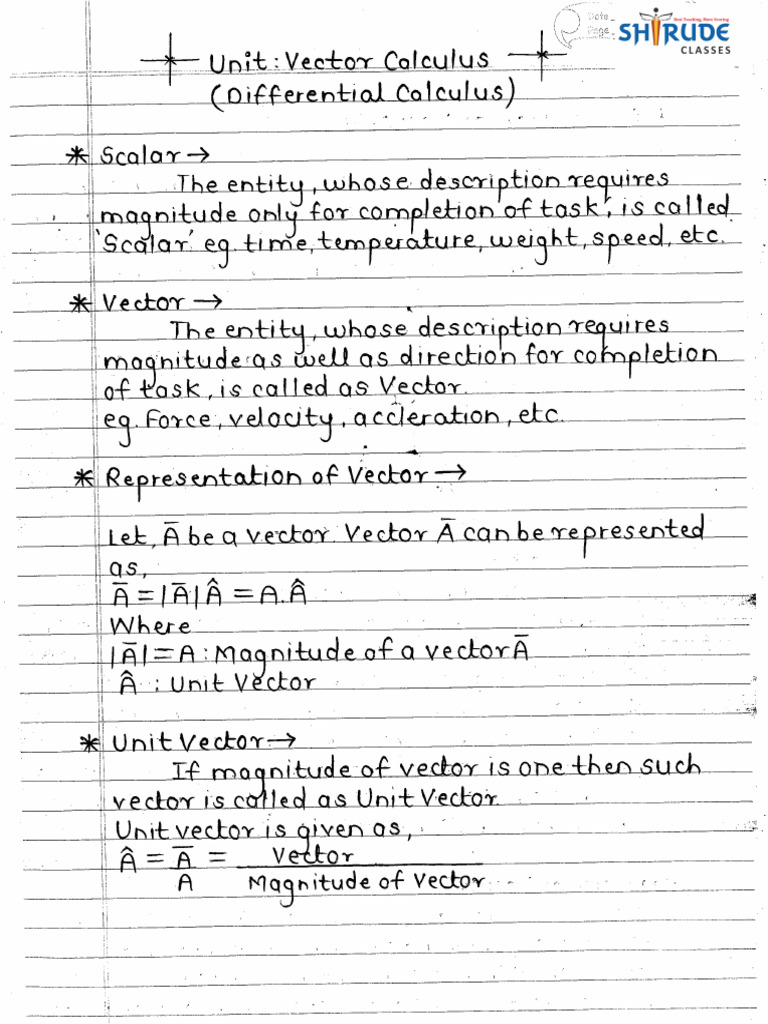 Date
Page
Best Teaching, More Scoring
SHIRUDE
CLASSES
Unit : Vector Calculus
(Differential Calculus)
* Scalar →
The entity, whose description requires
magnitude only for completion of task, is called
'Scalar' eg. time, temperature, weight, speed, etc.
* Vector →
The entity, whose description requires
magnitude as well as direction for completion
of task, is called as Vector.
eg. Force, velocity, accleration, etc.
* Representation of Vector →
Let, A̅ be a vector. Vector A̅ can be represented
as,
A̅ = |A̅| Â = A. Â
Where
|A̅| = A : Magnitude of a vector A̅
Â : Unit Vector
* Unit Vector →
If magnitude of vector is one then such
vector is called as Unit Vector.
Unit vector is given as,
Â = A̅ / A = Vector / Magnitude of Vector